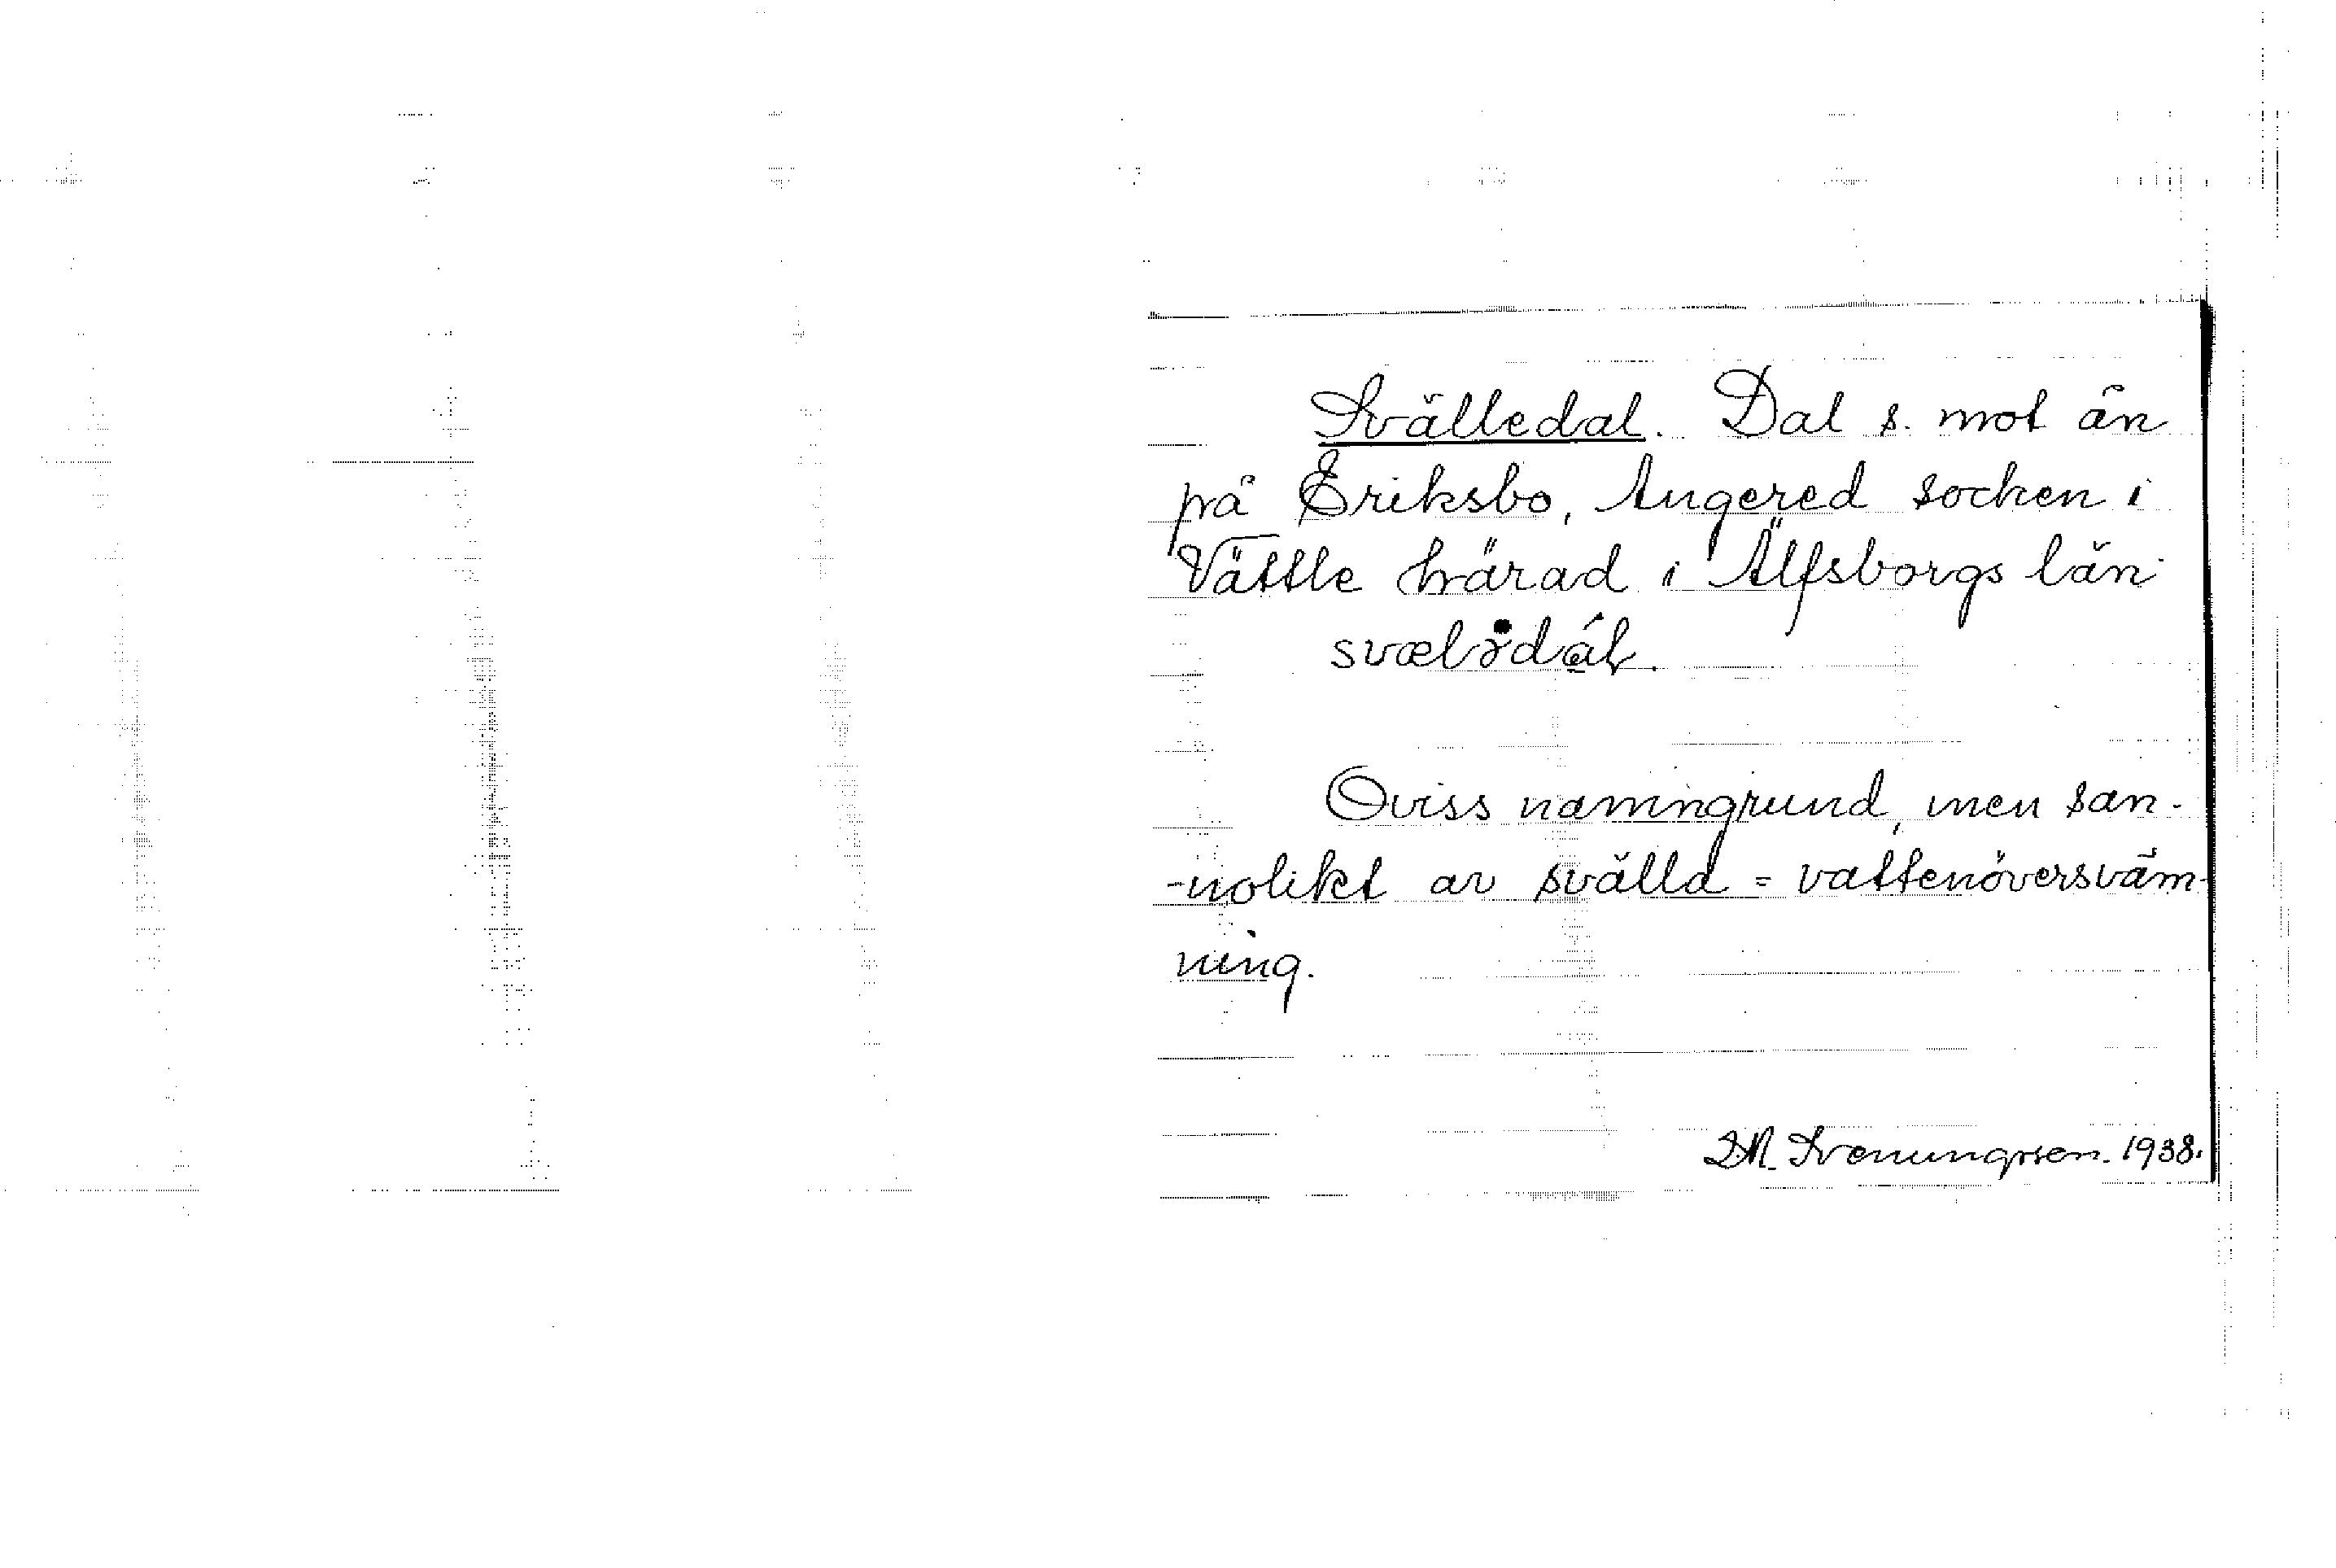 Svälledal. Dal s. mot ån
på Eriksbo, Angered socken i
Vättle härad i Älfsborgs län
Oviss namngrund, men san-
-nolikt av svälla = vattenöversväm-
ning.
Svenungsson. 1938.